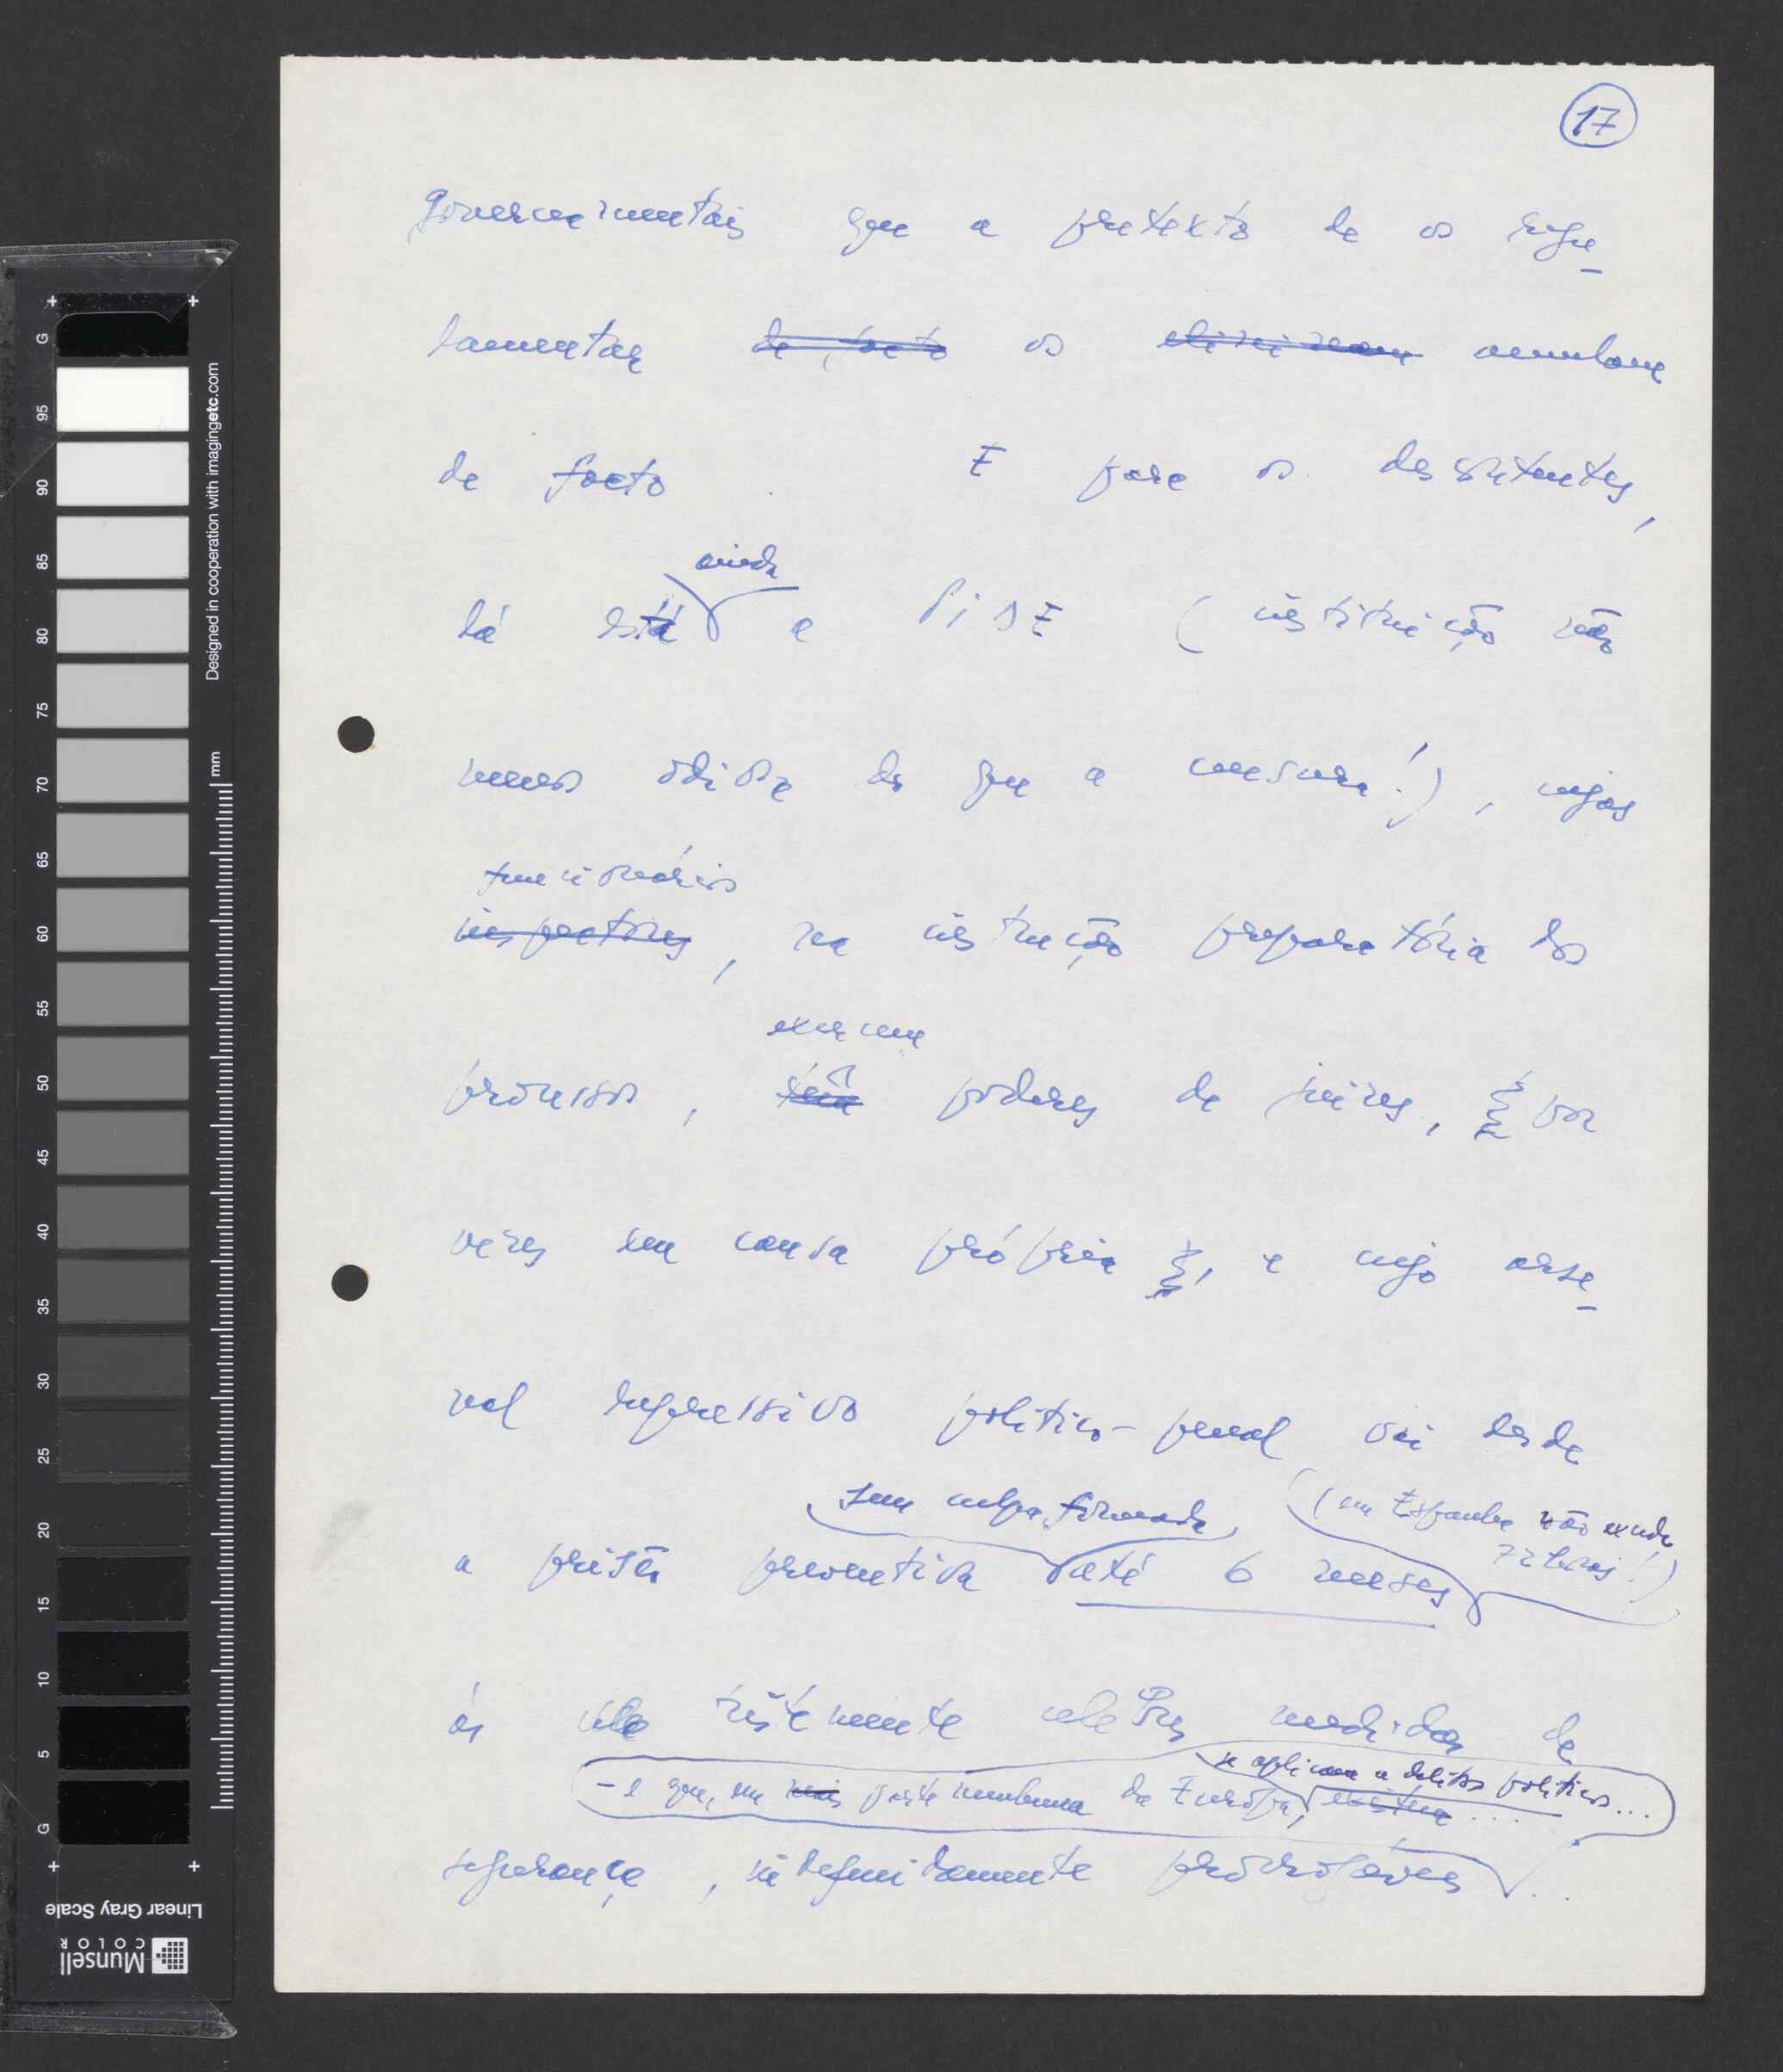 17
governamentais que a pretexto de os regu-
lamentar de facto os eliminam anulam
de facto. E para os desobientes,
lá está ainda a PIDE (instituição não
menos odiosa do que a censura!), cujos
funcionários
inspectores, na instrução preparatória dos
exercem
processos, têm poderes de juízes, por
vezes em causa própria, e cujo arse-
nal repressivo político-penal vai desde
sem culpa formada (em Espanha não excede
72 horas!)
a prisão preventiva até 6 meses
às tristemente celebres medidas de
se aplicam a delitos políticos...
- e que, em mais parte nenhuma da Europa, existem...
segurança, indefinidamente prorrogáveis...
G
95
90
85
80
75
70
65
60
55
50
45
40
35
30
25
20
15
10
5
G
Designed in cooperation with imagingetc.com
mm
Linear Gray Scale
Munsell
COLOR